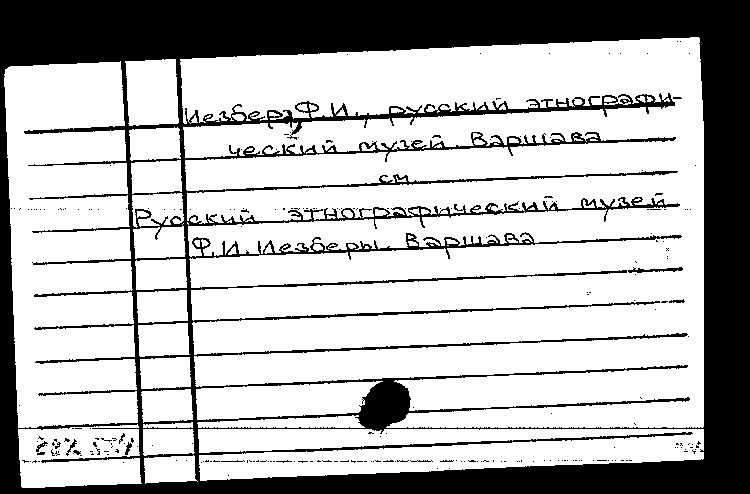 Иезбера, Ф.И., русский этнографи-
ческий музей. Варшава
см.
Русский этнографический музей
Ф.И. Иезберы. Варшава